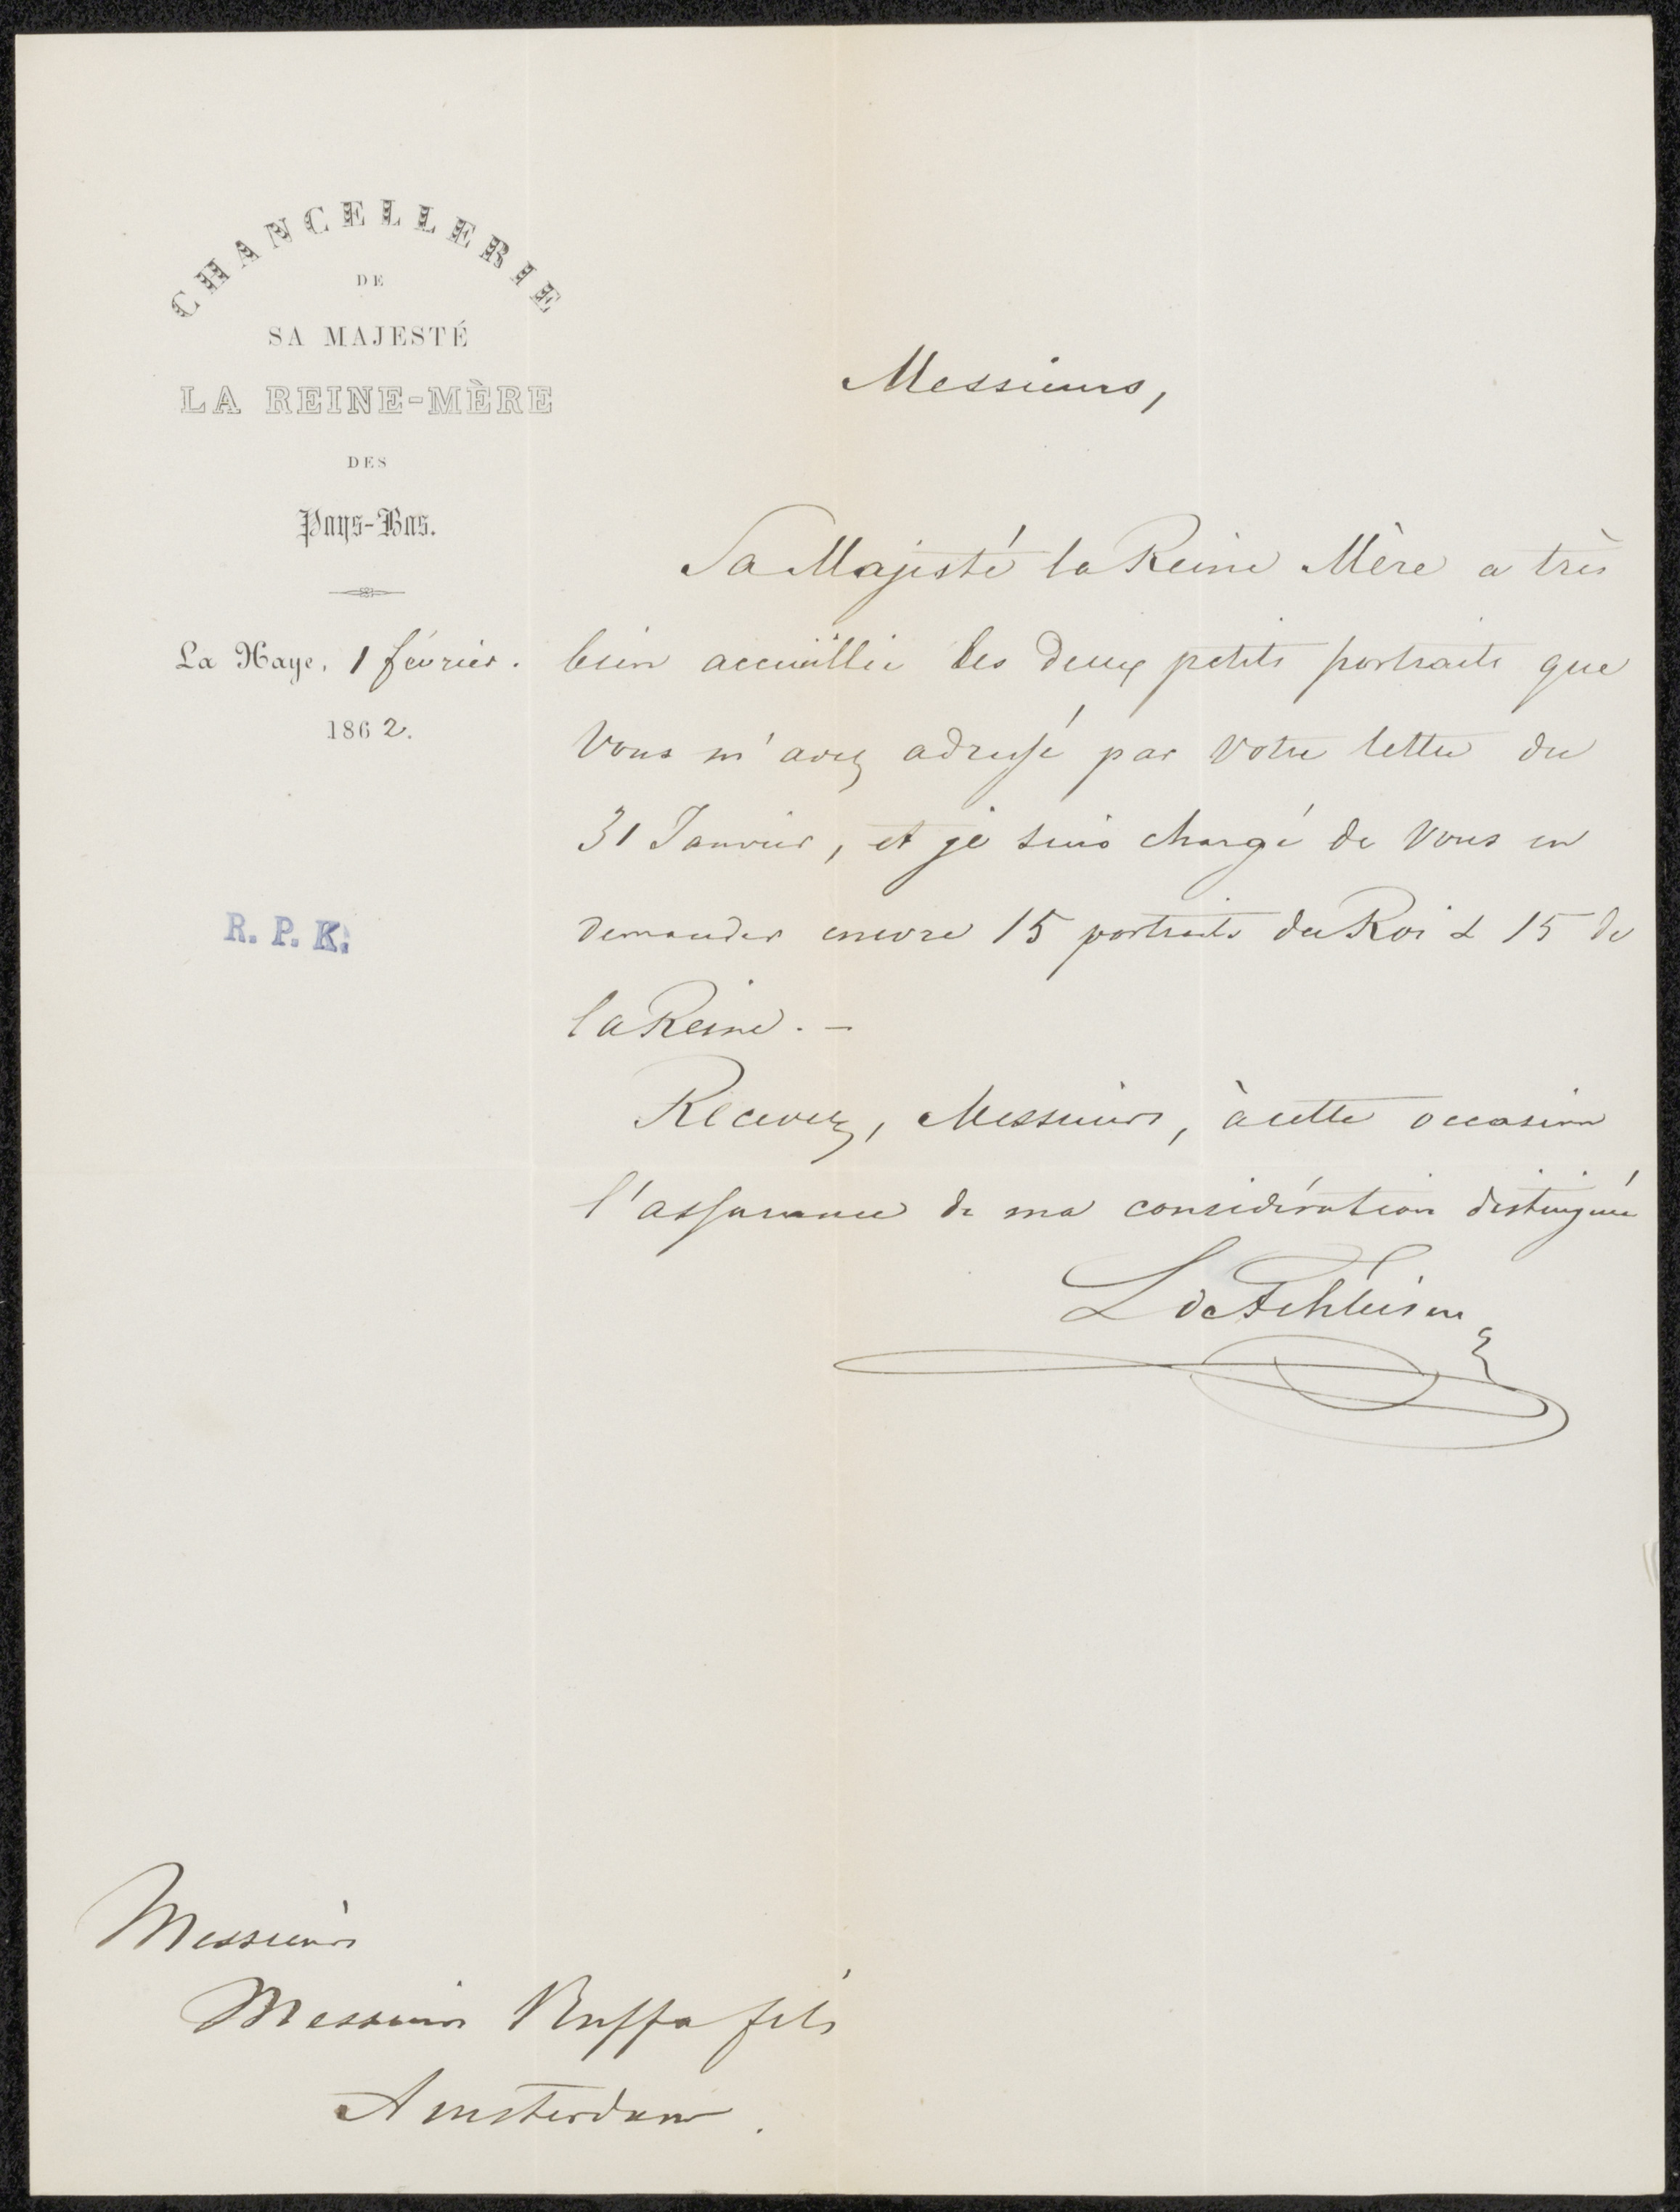 CHANCELLERIE
DE
SA MAJESTÉ
LA REINE-MÈRE
DES
Pays-Bas.
La Haye, 1 février.
1862.
R. P. K.
Messieurs,
Sa Majesté la Reine Mère a très
bien accueillie les deux petits portraits que
Vous m'avez adressé par Votre lettre du
31 Janvier, et je suis chargé de Vous en
demander encore 15 portraits du Roi & 15 de
la Reine. -
Recevez, Messieurs, à cette occasion
l'assurance de ma considération distinguée
L de
Messieurs
Messieurs Buffa fils
Amsterdam.